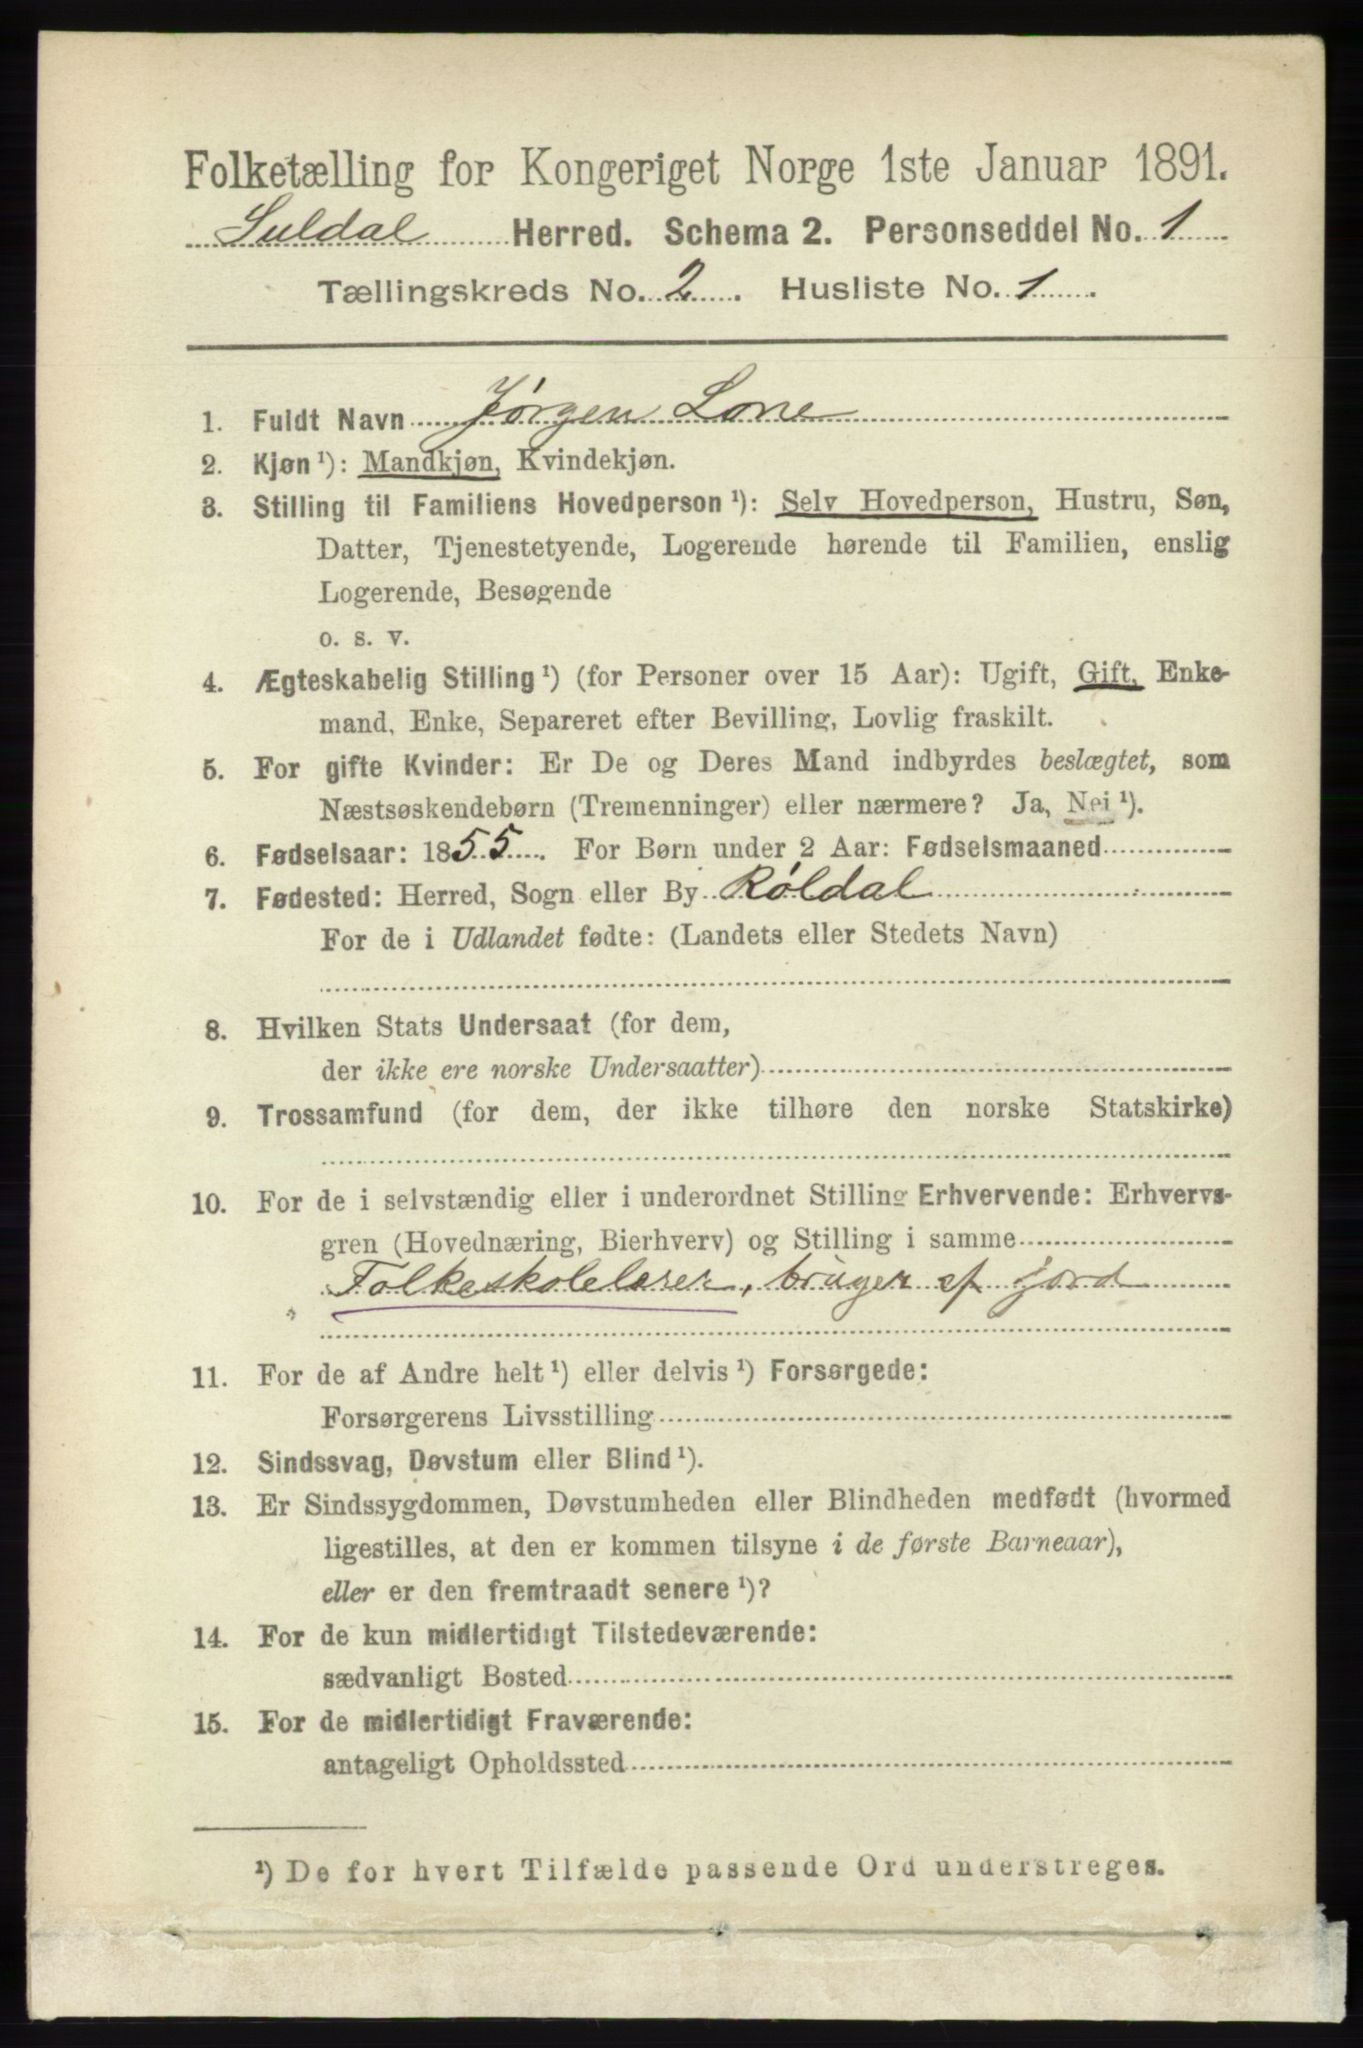 Folketælling for Kongeriget Norge 1ste Januar 1891.
Suldal Herred. Schema 2. Personseddel No. 1
Tællingskreds No. 2. Husliste No. 1.
1. Fuldt Navn Jørgen Lone
2. Kjøn ¹): Mandkjøn, Kvindekjøn.
3. Stilling til Familiens Hovedperson ¹): Selv Hovedperson, Hustru, Søn,
Datter, Tjenestetyende, Logerende hørende til Familien, enslig
Logerende, Besøgende
o. s. v.
4. Ægteskabelig Stilling ¹) (for Personer over 15 Aar): Ugift, Gift, Enke-
mand, Enke, Separeret efter Bevilling, Lovlig fraskilt.
5. For gifte Kvinder: Er De og Deres Mand indbyrdes beslægtet, som
Næstsøskendebørn (Tremenninger) eller nærmere? Ja, Nei ¹).
6. Fødselsaar: 1855. For Børn under 2 Aar: Fødselsmaaned
7. Fødested: Herred, Sogn eller By Røldal
For de i Udlandet fødte: (Landets eller Stedets Navn)
8. Hvilken Stats Undersaat (for dem,
der ikke ere norske Undersaatter)
9. Trossamfund (for dem, der ikke tilhøre den norske Statskirke)
10. For de i selvstændig eller i underordnet Stilling Erhvervende: Erhvervs-
gren (Hovednæring, Bierhverv) og Stilling i samme
Folkeskolelærer, bruger af jord
11. For de af Andre helt ¹) eller delvis ¹) Forsørgede:
Forsørgerens Livsstilling
12. Sindssvag, Døvstum eller Blind ¹).
13. Er Sindssygdommen, Døvstumheden eller Blindheden medfødt (hvormed
ligestilles, at den er kommen tilsyne i de første Barneaar),
eller er den fremtraadt senere ¹)?
14. For de kun midlertidigt Tilstedeværende:
sædvanligt Bosted
15. For de midlertidigt Fraværende:
antageligt Opholdssted
¹) De for hvert Tilfælde passende Ord understreges.